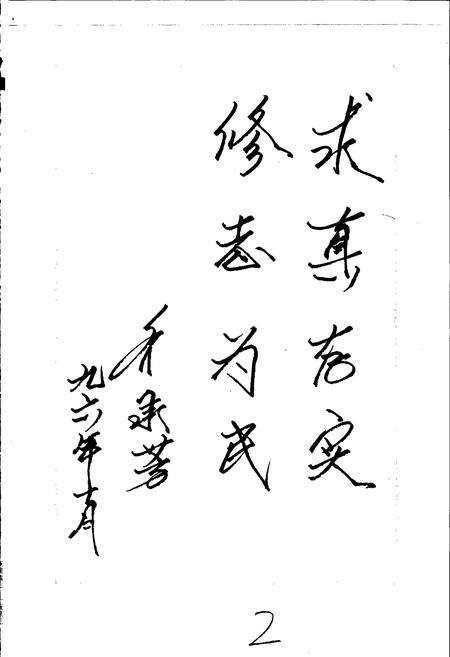 求真存实
修志为民
承芳
九六年十月
2